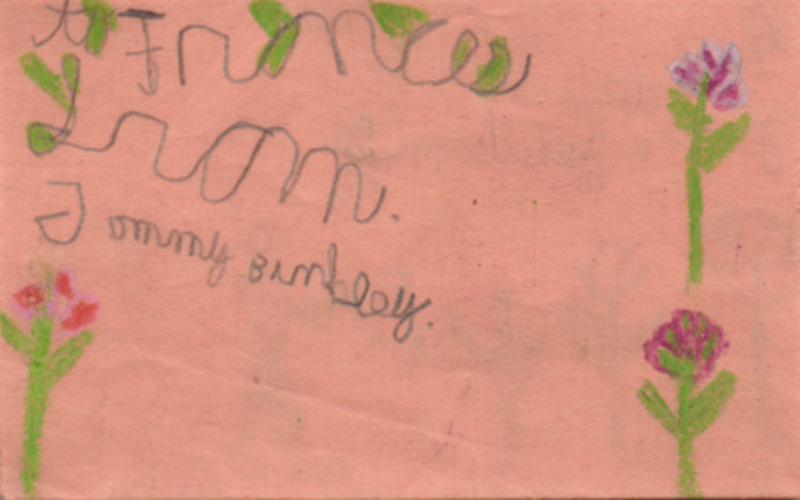 to Frances
From.
Tommy Binkley.